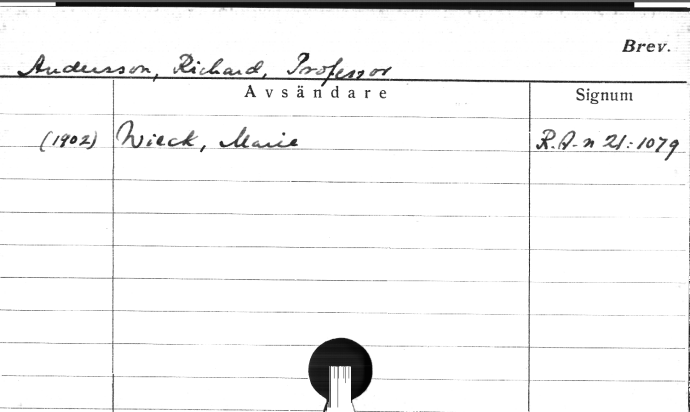 Brev.
Andersson, Richard, Professor
Avsändare Signum
(1902) Wieck, Marie R.A.n 21:1079